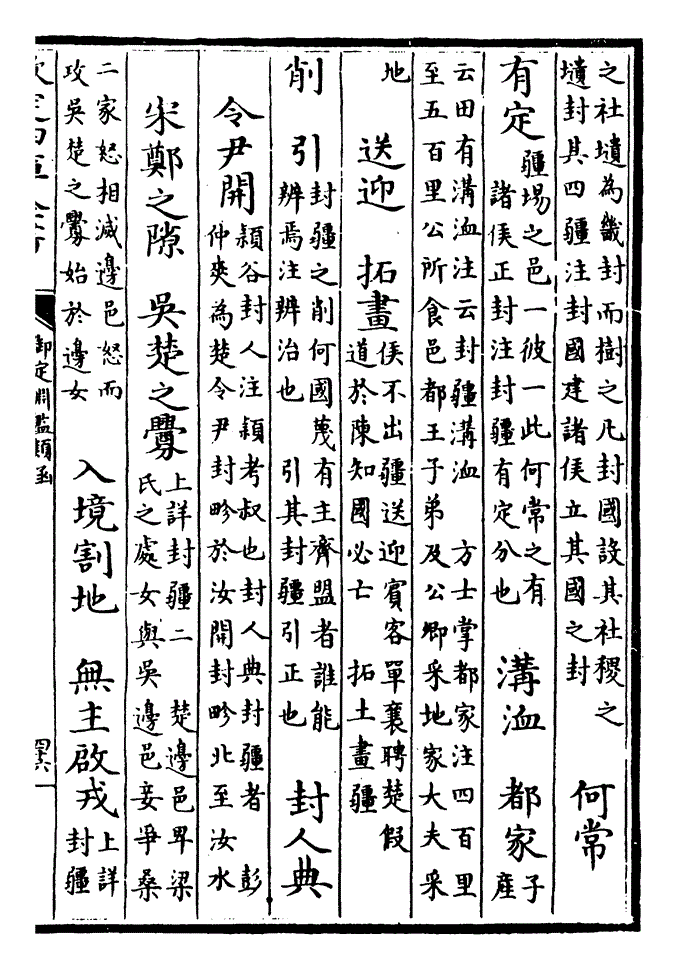 之社壝為畿封而樹之凡封國設其社稷之
壝封其四疆注封國建諸侯立其國之封
何常
有定
疆場之邑一彼一此何常之有
諸侯正封注封疆有定分也
溝洫 都家
子
產
云田有溝洫注云封疆溝洫 方士掌都家注四百里
至五百里公所食邑都王子弟及公卿采地家大夫采
地
送迎 拓畫
侯不出疆送迎賓客單襄聘楚假
道於陳知國必亡 拓土畫疆
削 引
封疆之削何國蔑有主齊盟者誰能
辨焉注辨治也 引其封疆引正也
封人典
令尹開
潁谷封人注潁考叔也封人典封疆者 彭
仲爽為楚令尹封畛於汝開封畛北至汝水
宋鄭之隙 吳楚之釁
上詳封疆二 楚邊邑卑梁
氏之處女與吳邊邑妾爭桑
二家怒相滅邊邑怒而
攻吳楚之釁始於邊女
入境割地 無主啟戎
上詳
封疆
御定淵鑑類函
四六